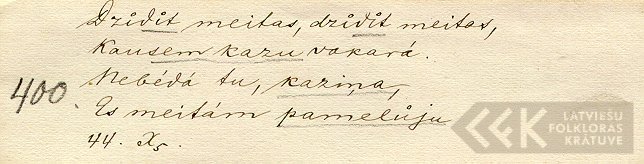 Dzîdît meitas, dzîdît meitas,
Kausem kazu vakará.
400. Nebédá tu, kaziņa,
Es meitám pamelůju
44. X5.
LATVIEŠU
FOLKLORAS
KRĀTUVE